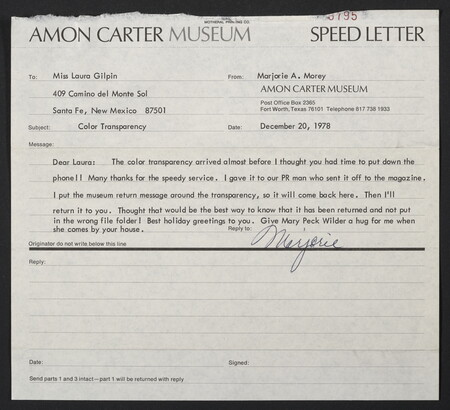 AMON CARTER MUSEUM SPEED LETTER
To: Miss Laura Gilpin From: Marjorie A. Morey
409 Camino del Monte Sol AMON CARTER MUSEUM
Santa Fe, New Mexico 87501 Post Office Box 2365
Fort Worth, Texas 76101 Telephone 817 738 1933
Subject: Color Transparency Date: December 20, 1978
Message:
Dear Laura: The color transparency arrived almost before I thought you had time to put down the
phone!! Many thanks for the speedy service. I gave it to our PR man who sent it off to the magazine.
I put the museum return message around the transparency, so it will come back here. Then I'll
return it to you. Thought that would be the best way to know that it has been returned and not put
in the wrong file folder! Best holiday greetings to you. Give Mary Peck Wilder a hug for me when
she comes by your house. Reply to:
Marjorie
Originator do not write below this line
Reply:
Date: Signed:
Send parts 1 and 3 intact—part 1 will be returned with reply